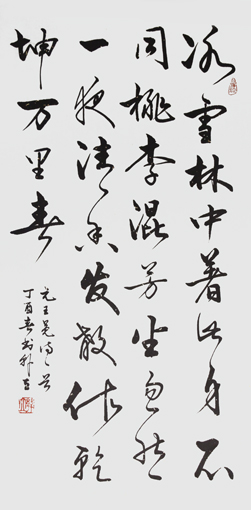 冰雪林中著此身不
同桃李混芳尘忽然
一夜清香发散作乾
坤万里春
元王冕诗一首
丁酉春书